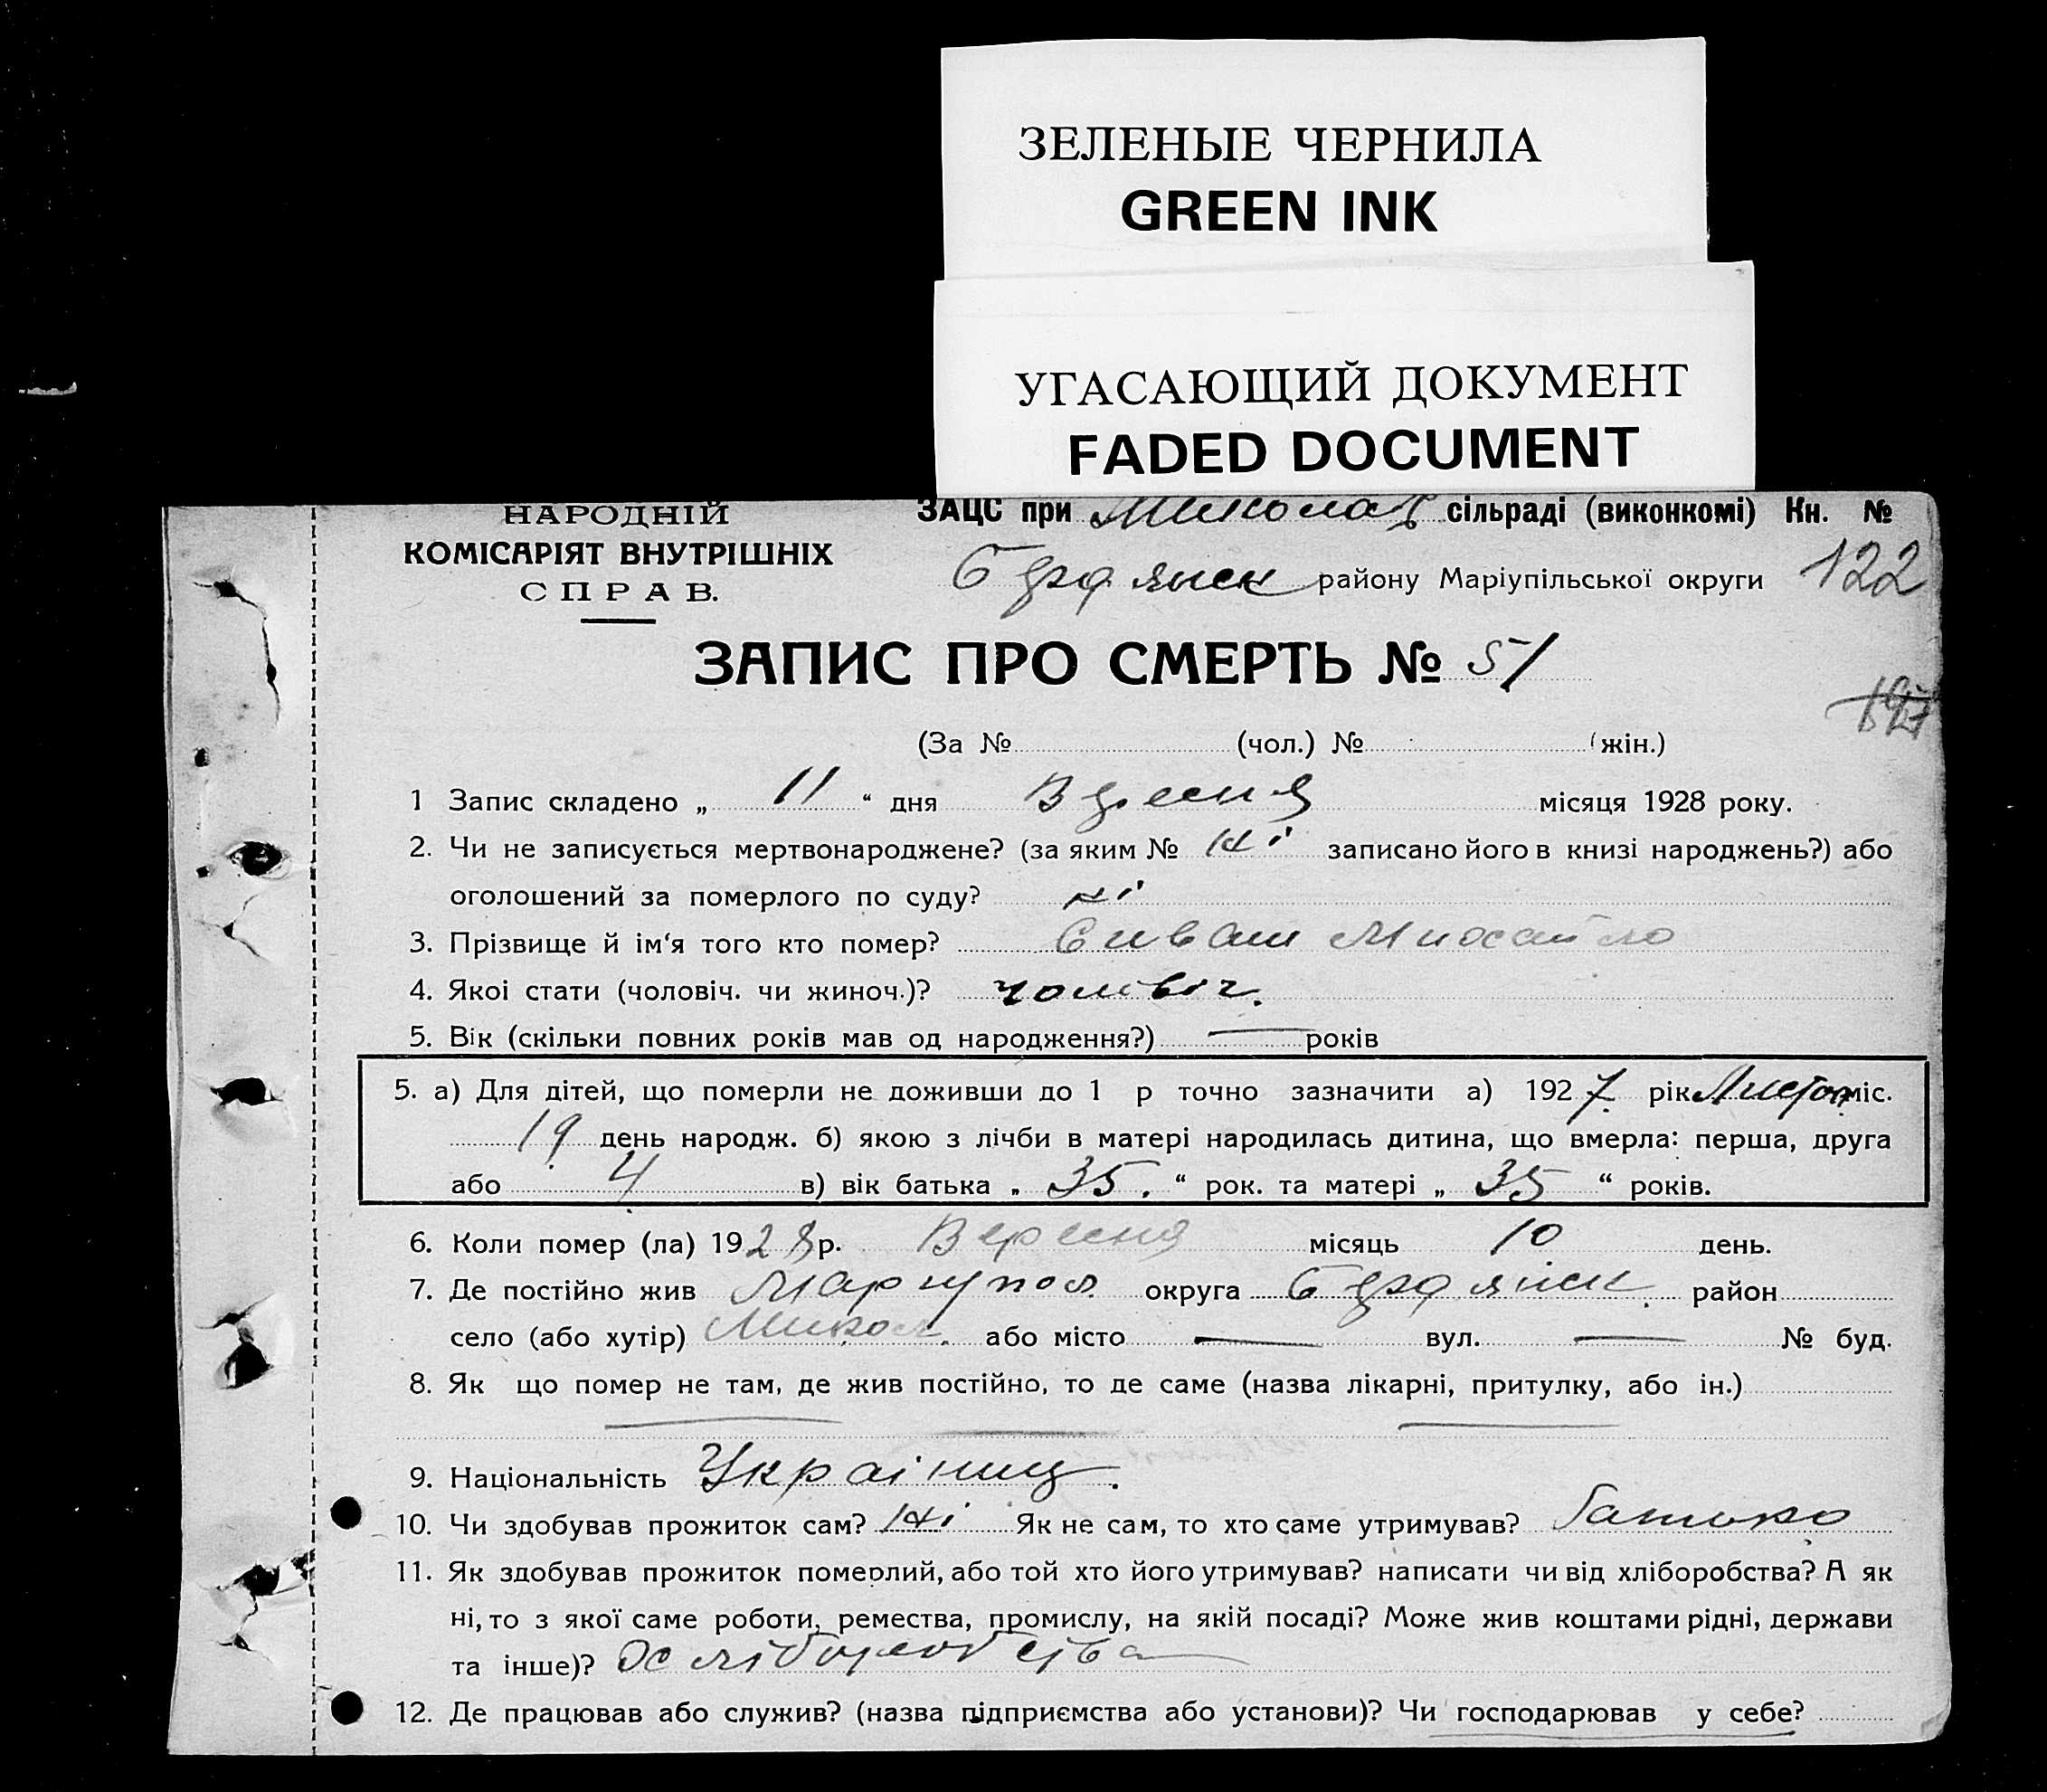 ЗЕЛЕНЫЕ ЧЕРНИЛА
GREEN INK
УГАСАЮЩИЙ ДОКУМЕНТ
FADED DOCUMENT
НАРОДНІЙ
КОМІСАРІЯТ ВНУТРІШНІХ
СПРАВ.
ЗАЦС при Микола сільраді (виконкомі) Кн. №
Бердянск району Маріупільської округи 122
ЗАПИС ПРО СМЕРТЬ № 51
(За № (чол.) № (жін.)
1 Запис складено „ 11 “ дня Вресня місяця 1928 року.
2. Чи не записується мертвонароджене? (за яким № ні записано його в книзі народжень?) або
оголошений за померлого по суду? ні
3. Прізвище й ім‘я того кто помер? Сиваш Михайло
4. Якоі стати (чоловіч. чи жиноч.)? чоловіч.
5. Вік (скільки повних років мав од народження?) — років
5. а) Для дітей, що померли не доживши до 1 р точно зазначити а) 1927 рік Листоп міс.
19 день народж. б) якою з лічби в матері народилась дитина, що вмерла: перша, друга
або 4 в) вік батька „ 35. “ рок. та матері „ 35 “ років.
6. Коли помер (ла) 1928 р. Вересня місяць 10 день.
7. Де постійно жив Маріупол. округа Бердянск. район
село (або хутір) Микол. або місто — вул. — № буд.
8. Як що помер не там, де жив постійно, то де саме (назва лікарні, притулку, або ін.)
9. Національність Українец.
10. Чи здобував прожиток сам? ні Як не сам, то хто саме утримував? батько
11. Як здобував прожиток померлий, або той хто його утримував? написати чи від хліборобства? А як
ні, то з якої саме роботи, ремества, промислу, на якій посаді? Може жив коштами рідні, держави
та інше)? Хліборобства
12. Де працював або служив? (назва підприємства або установи)? Чи господарював у себе?